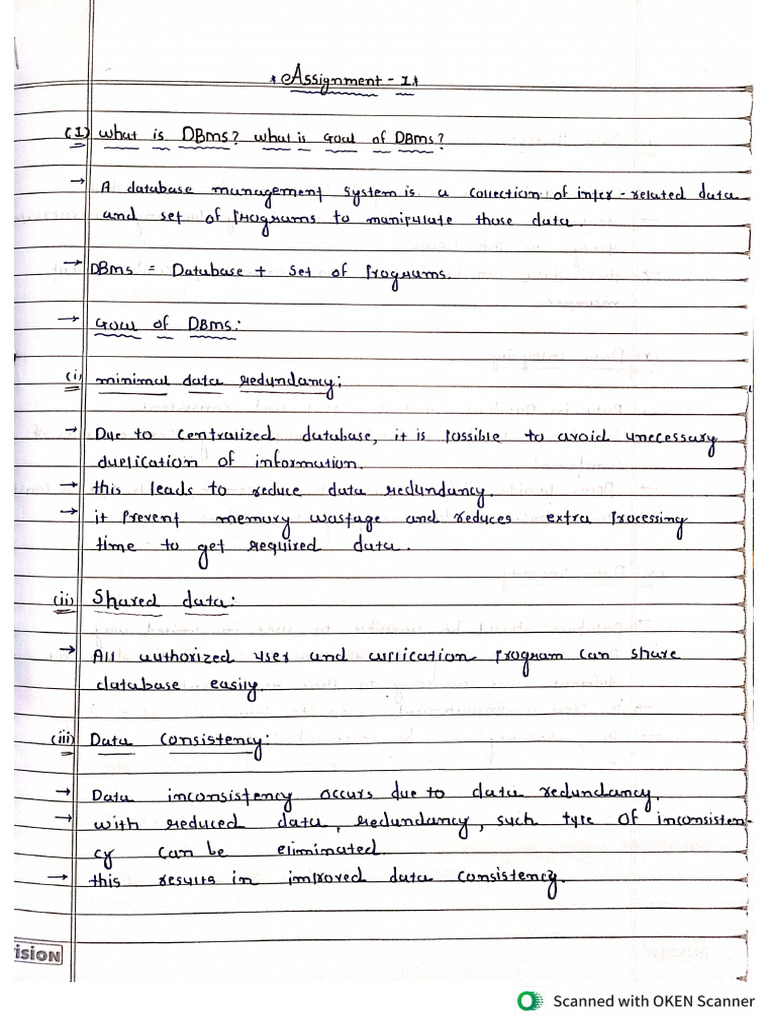 * Assignment - 1 *
(1) What is DBMS? What is Goal of DBMS?
→ A database management system is a collection of inter-related data
and set of programs to manipulate those data.
→ DBMS = Database + set of Programs.
→ Goal of DBMS:
(i) minimal data redundancy:
→ Due to centralized database, it is possible to avoid unecessary
duplication of information.
→ this leads to reduce data redundancy.
→ it prevent memory wastage and reduces extra processing
time to get required data.
(ii) Shared data:
→ All authorized user and application program can share
database easily.
(iii) Data Consistency:
→ Data inconsistency occurs due to data redundancy.
→ with reduced data, redundancy, such type of inconsisten-
cy can be eliminated.
→ this results in improved data consistency.
ision
Scanned with OKEN Scanner